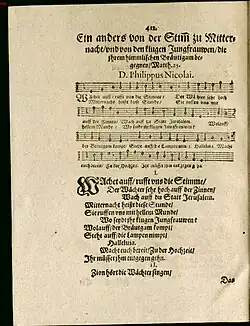 412.
Ein anders von der Stim̃ zu Mitter-
nacht/ vnd von den klugen Jungfrauwen/ die
jhrem himmlischen Bräutigam be-
gegnen/ Matth. 25.
D. Philippus Nicolai.
WAchet auff/ rufft vns die Stimme/ Der Wächter sehr hoch
Mitternacht heist diese Stunde/ Sie ruffen vns mit
auff der Zinnen/ Wach auff du Statt Jerusalem. Wolauff/
hellem Munde/ Wo seydt jhr klugen Jungfrauwen?
der Bräutgam kompt/ Steht auff/ die Lampen nimpt/ Halleluia. Macht
euch bereit/ Zu der Hochzeit/ Jhr müsset jhm entgegen gehn.
I.
WAchet auff/ rufft vns die Stimme/
Der Wächter sehr hoch auff der Zinnen/
Wach auff du Statt Jerusalem.
Mitternacht heist diese Stunde/
Sie ruffen vns mit hellem Munde/
Wo seydt jhr klugen Jungfrauwen?
Wolauff/ der Bräutgam kompt/
Steht auff/ die Lampen nimpt/
Halleluia.
Macht euch bereit/ Zu der Hochzeit/
Jhr müsset jhm entgegen gehn.
II.
Zion hört die Wächter singen/
Das